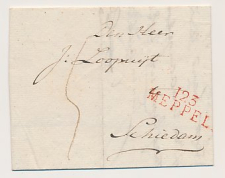 Den Heer
J. Loopuijt
5
123
MEPPEL
Schiedam